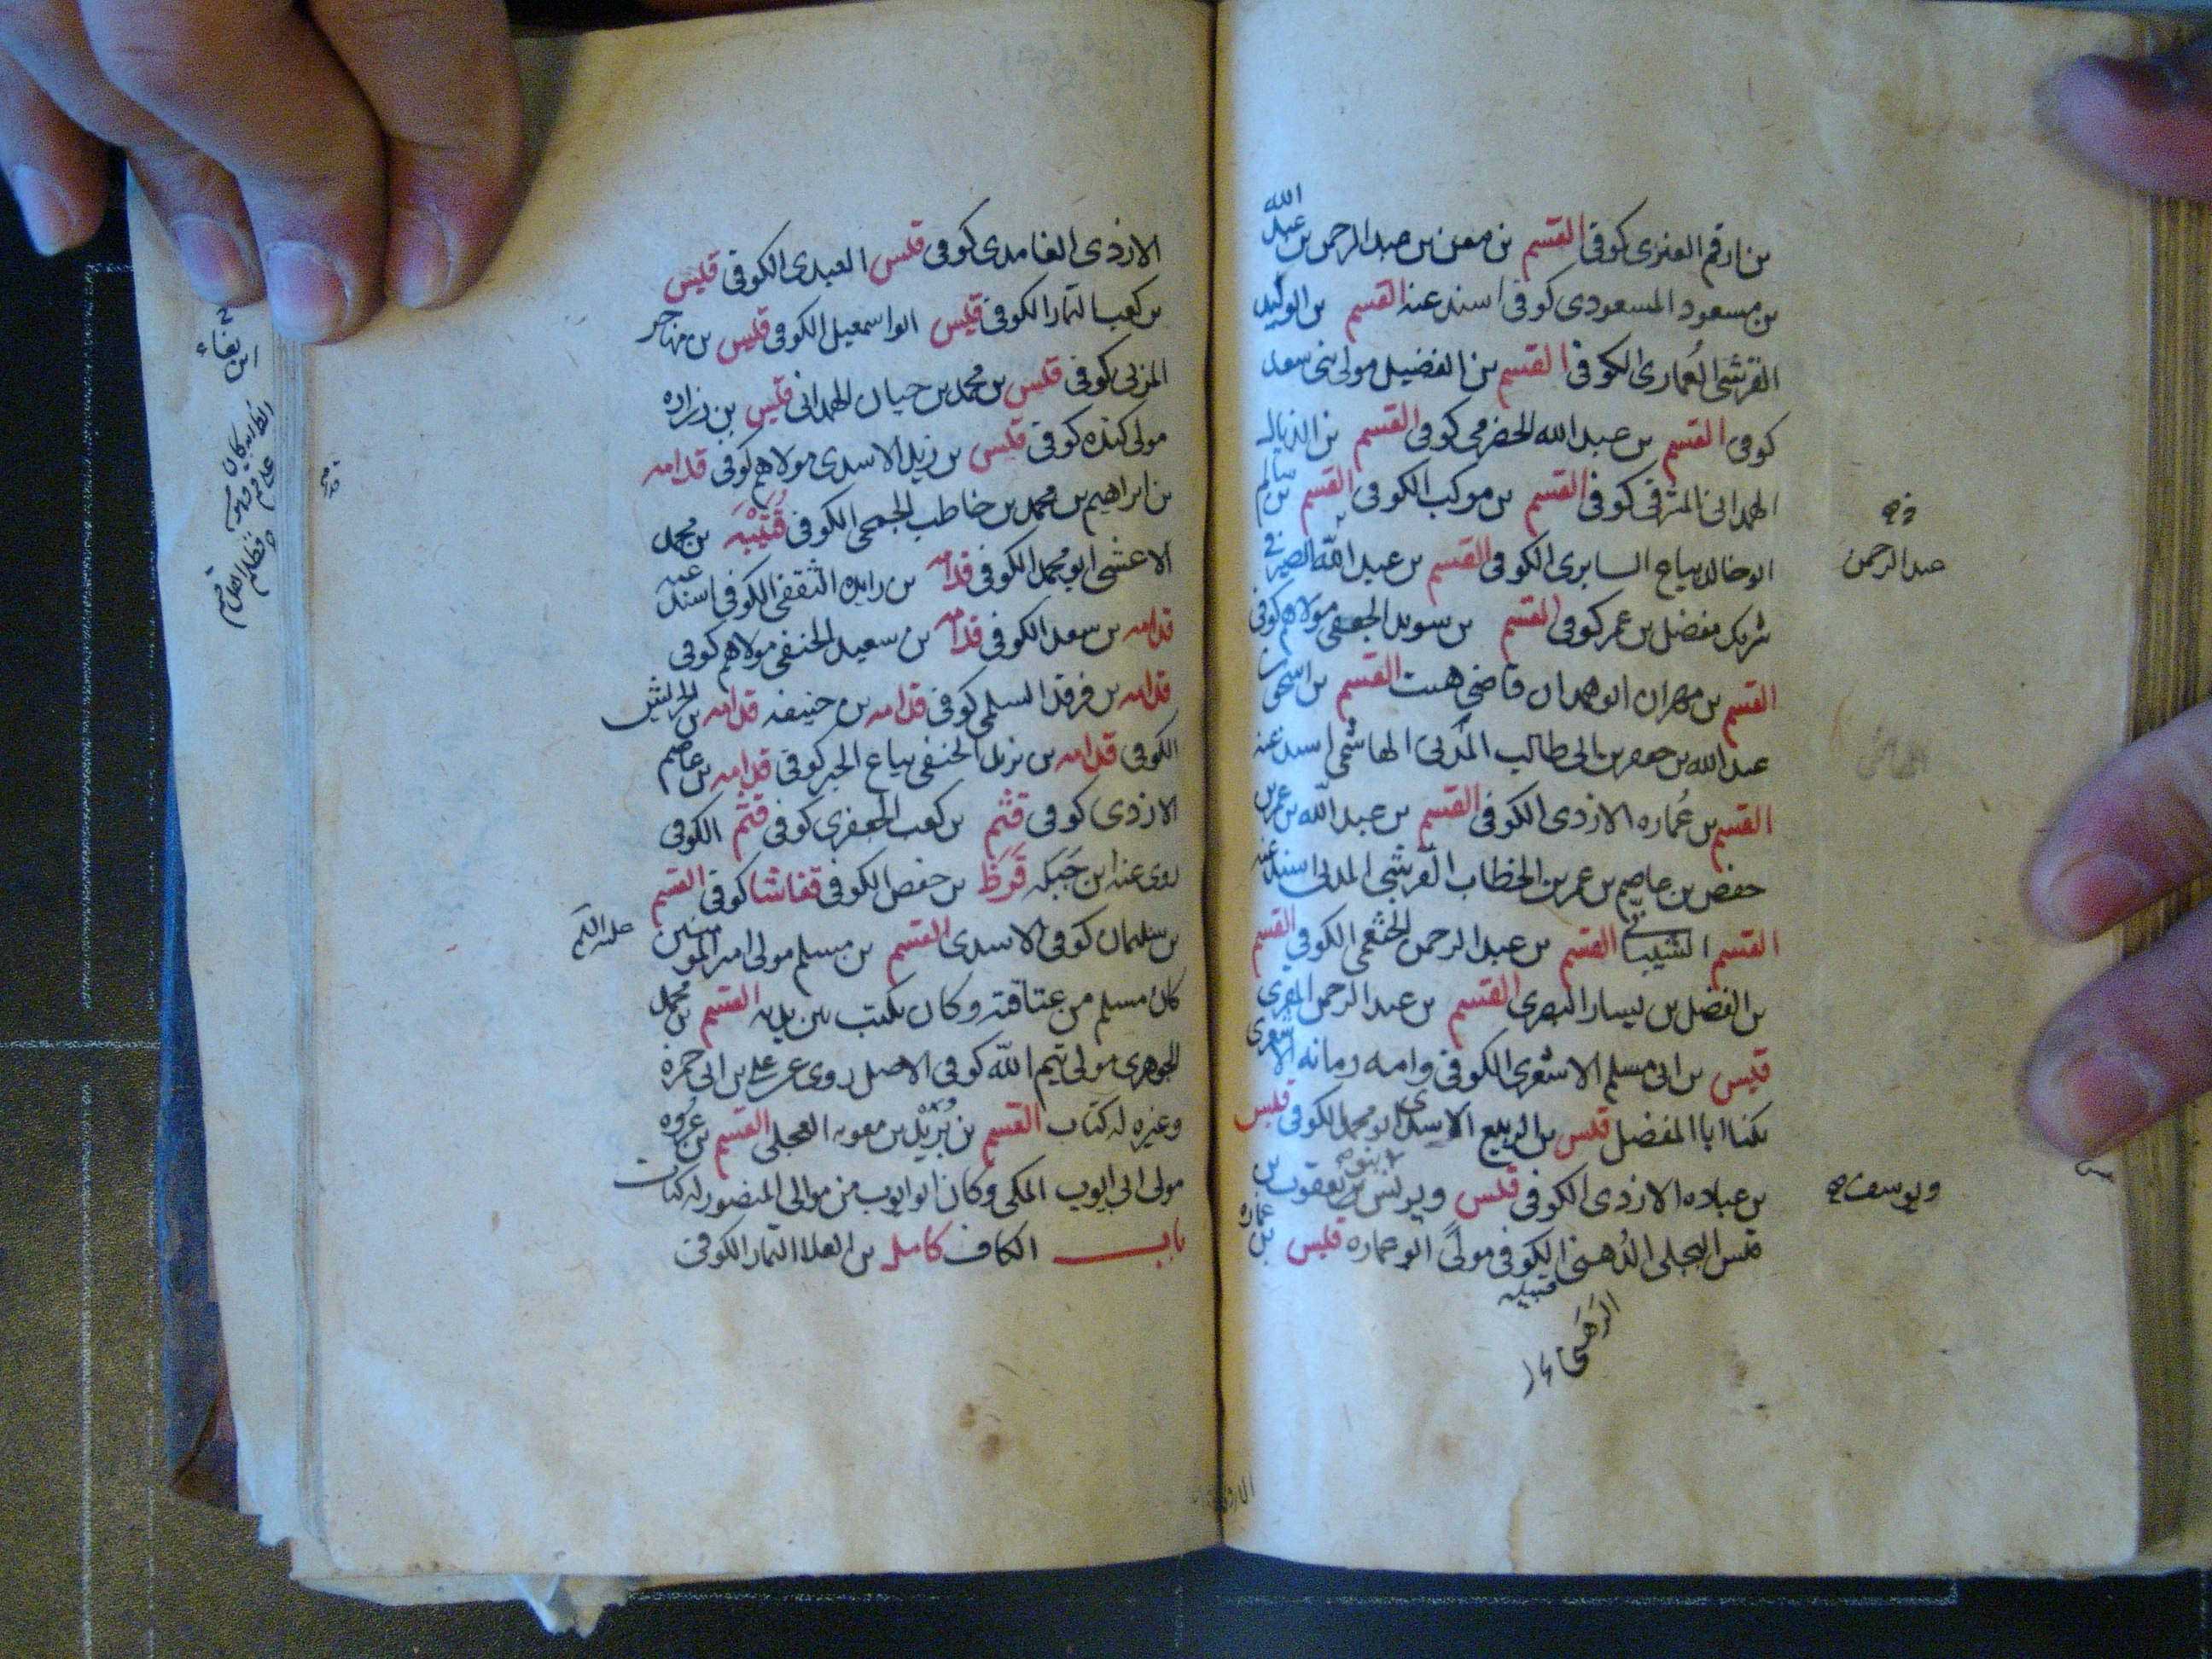 بن ارقم العنزى كوفى القسم بن معن بن عبد الرحمن بن عبد الله
بن مسعود المسعودى كوفى اسند عنه القسم بن الوليد
القرشى العمارى الكوفى القسم بن الفضيل مولى بنى سعد
كوفى القسم بن عبد الله الحضرمى كوفى القسم بن الذيال
الهمدانى المشرقى كوفى القسم بن موكب الكوفى القسم بن سالم
ابو خالد بياع السابرى الكوفى القسم بن عبد الله الصيرفى
شريك مفضل بن عمر كوفى القسم بن سويد الجعفى مولاهم كوفى
القسم بن مهران ابو همدان قاضى هيت القسم بن اسحق
عبد الله بن جعفر بن ابى طالب المدنى الهاشمى اسند عنه
القسم بن عُماره الازدى الكوفى القسم بن عبد الله بن عمر بن
حفص بن عاصم بن عمر بن الخطاب القرشى المدنى اسند عنه
القسم الشيبانى القسم بن عبد الرحمن الخثعمى الكوفى القسم
بن الفضل بن يسار البصرى القسم بن عبد الرحمن المقرى
قيس بن ابى مسلم الاشعرى الكوفى وامه رمانه الاشعرى
يكنا ابا المفضل قيس بن الربيع الاسدى ابو محمد الكوفى قيس
بن عباده الازدى الكوفى قيس ويونس بن يعقوب بن
قيس البجلى الدُهنى الكوفى مولى ابو عماره قيس بن عماره
قبيله
عبد الرحمن
ويوسف
الازدى الغامدى كوفى قيس العبدى الكوفى قيس
بن كعب التمار الكوفى قيس ابو اسمعيل الكوفى قيس بن مهاجر
المزنى كوفى قيس بن محمد بن حيان الهمدانى قيس بن زراره
مولى كنده كوفى قيس بن زيد الاسدى مولاهم كوفى قدامه
بن ابراهيم بن محمد بن خاطب الجمحى الكوفى قُتَيْبَه بن محمد
الاعشى ابو محمد الكوفى قدامه بن زايده الثقفى الكوفى اسند عنه
قدامه بن سعد الكوفى قدامه بن سعيد الحنفى مولاهم كوفى
قدامه بن فرقد السلمى كوفى قدامه بن حنيفه قدامه بن الحريش
الكوفى قدامه بن يزيد الحنفى بياع الحبر كوفى قدامه بن عاصم
الازدى كوفى قثم بن كعب الجعفرى كوفى قثم الكوفى
روى عنه ابن جبله قَرَظ بن حفص الكوفى قفاشا كوفى القسم
بن سليمان كوفى الاسدى القسم بن مسلم مولى امير المومنين عليه السلم
كان مسلم من عتاقته وكان يكتب بين يديه القسم بن محمد
الجوهرى مولى تيم الله كوفى الاصل روى عن على بن ابى حمزه
وغيره له كتاب القسم بن بُرَيْد بن معويه العجلى القسم بن عروه
مولى ابى ايوب المكى وكان ابو ايوب من موالى المنصور له كتاب
باب الكاف كامل بن العلا التمار الكوفى